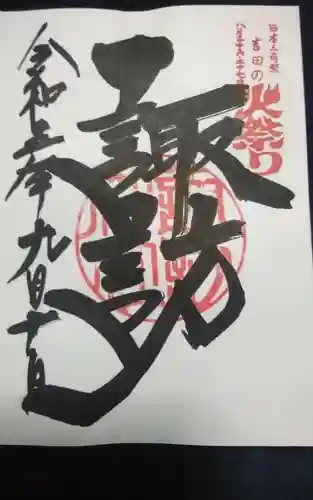 日本三奇祭
吉田の
火祭り
八月二十六、二十七日
諏訪
令和五年九月十日